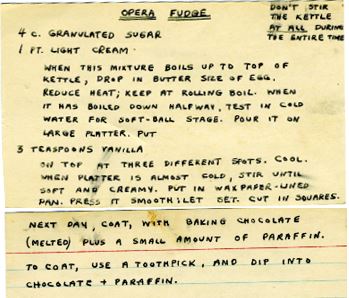 OPERA FUDGE
DON'T STIR
THE KETTLE
AT ALL DURING
THE ENTIRE TIME
4 C. GRANULATED SUGAR
1 PT. LIGHT CREAM
WHEN THIS MIXTURE BOILS UP TO TOP OF
KETTLE, DROP IN BUTTER SIZE OF EGG.
REDUCE HEAT; KEEP AT ROLLING BOIL. WHEN
IT HAS BOILED DOWN HALFWAY, TEST IN COLD
WATER FOR SOFT-BALL STAGE. POUR IT ON
LARGE PLATTER. PUT
3 TEASPOONS VANILLA
ON TOP AT THREE DIFFERENT SPOTS. COOL.
WHEN PLATTER IS ALMOST COLD, STIR UNTIL
SOFT AND CREAMY. PUT IN WAXPAPER-LINED
PAN. PRESS IT SMOOTH; LET SET. CUT IN SQUARES.
NEXT DAY, COAT, WITH BAKING CHOCOLATE
(MELTED) PLUS A SMALL AMOUNT OF PARAFFIN.
TO COAT, USE A TOOTHPICK, AND DIP INTO
CHOCOLATE + PARAFFIN.